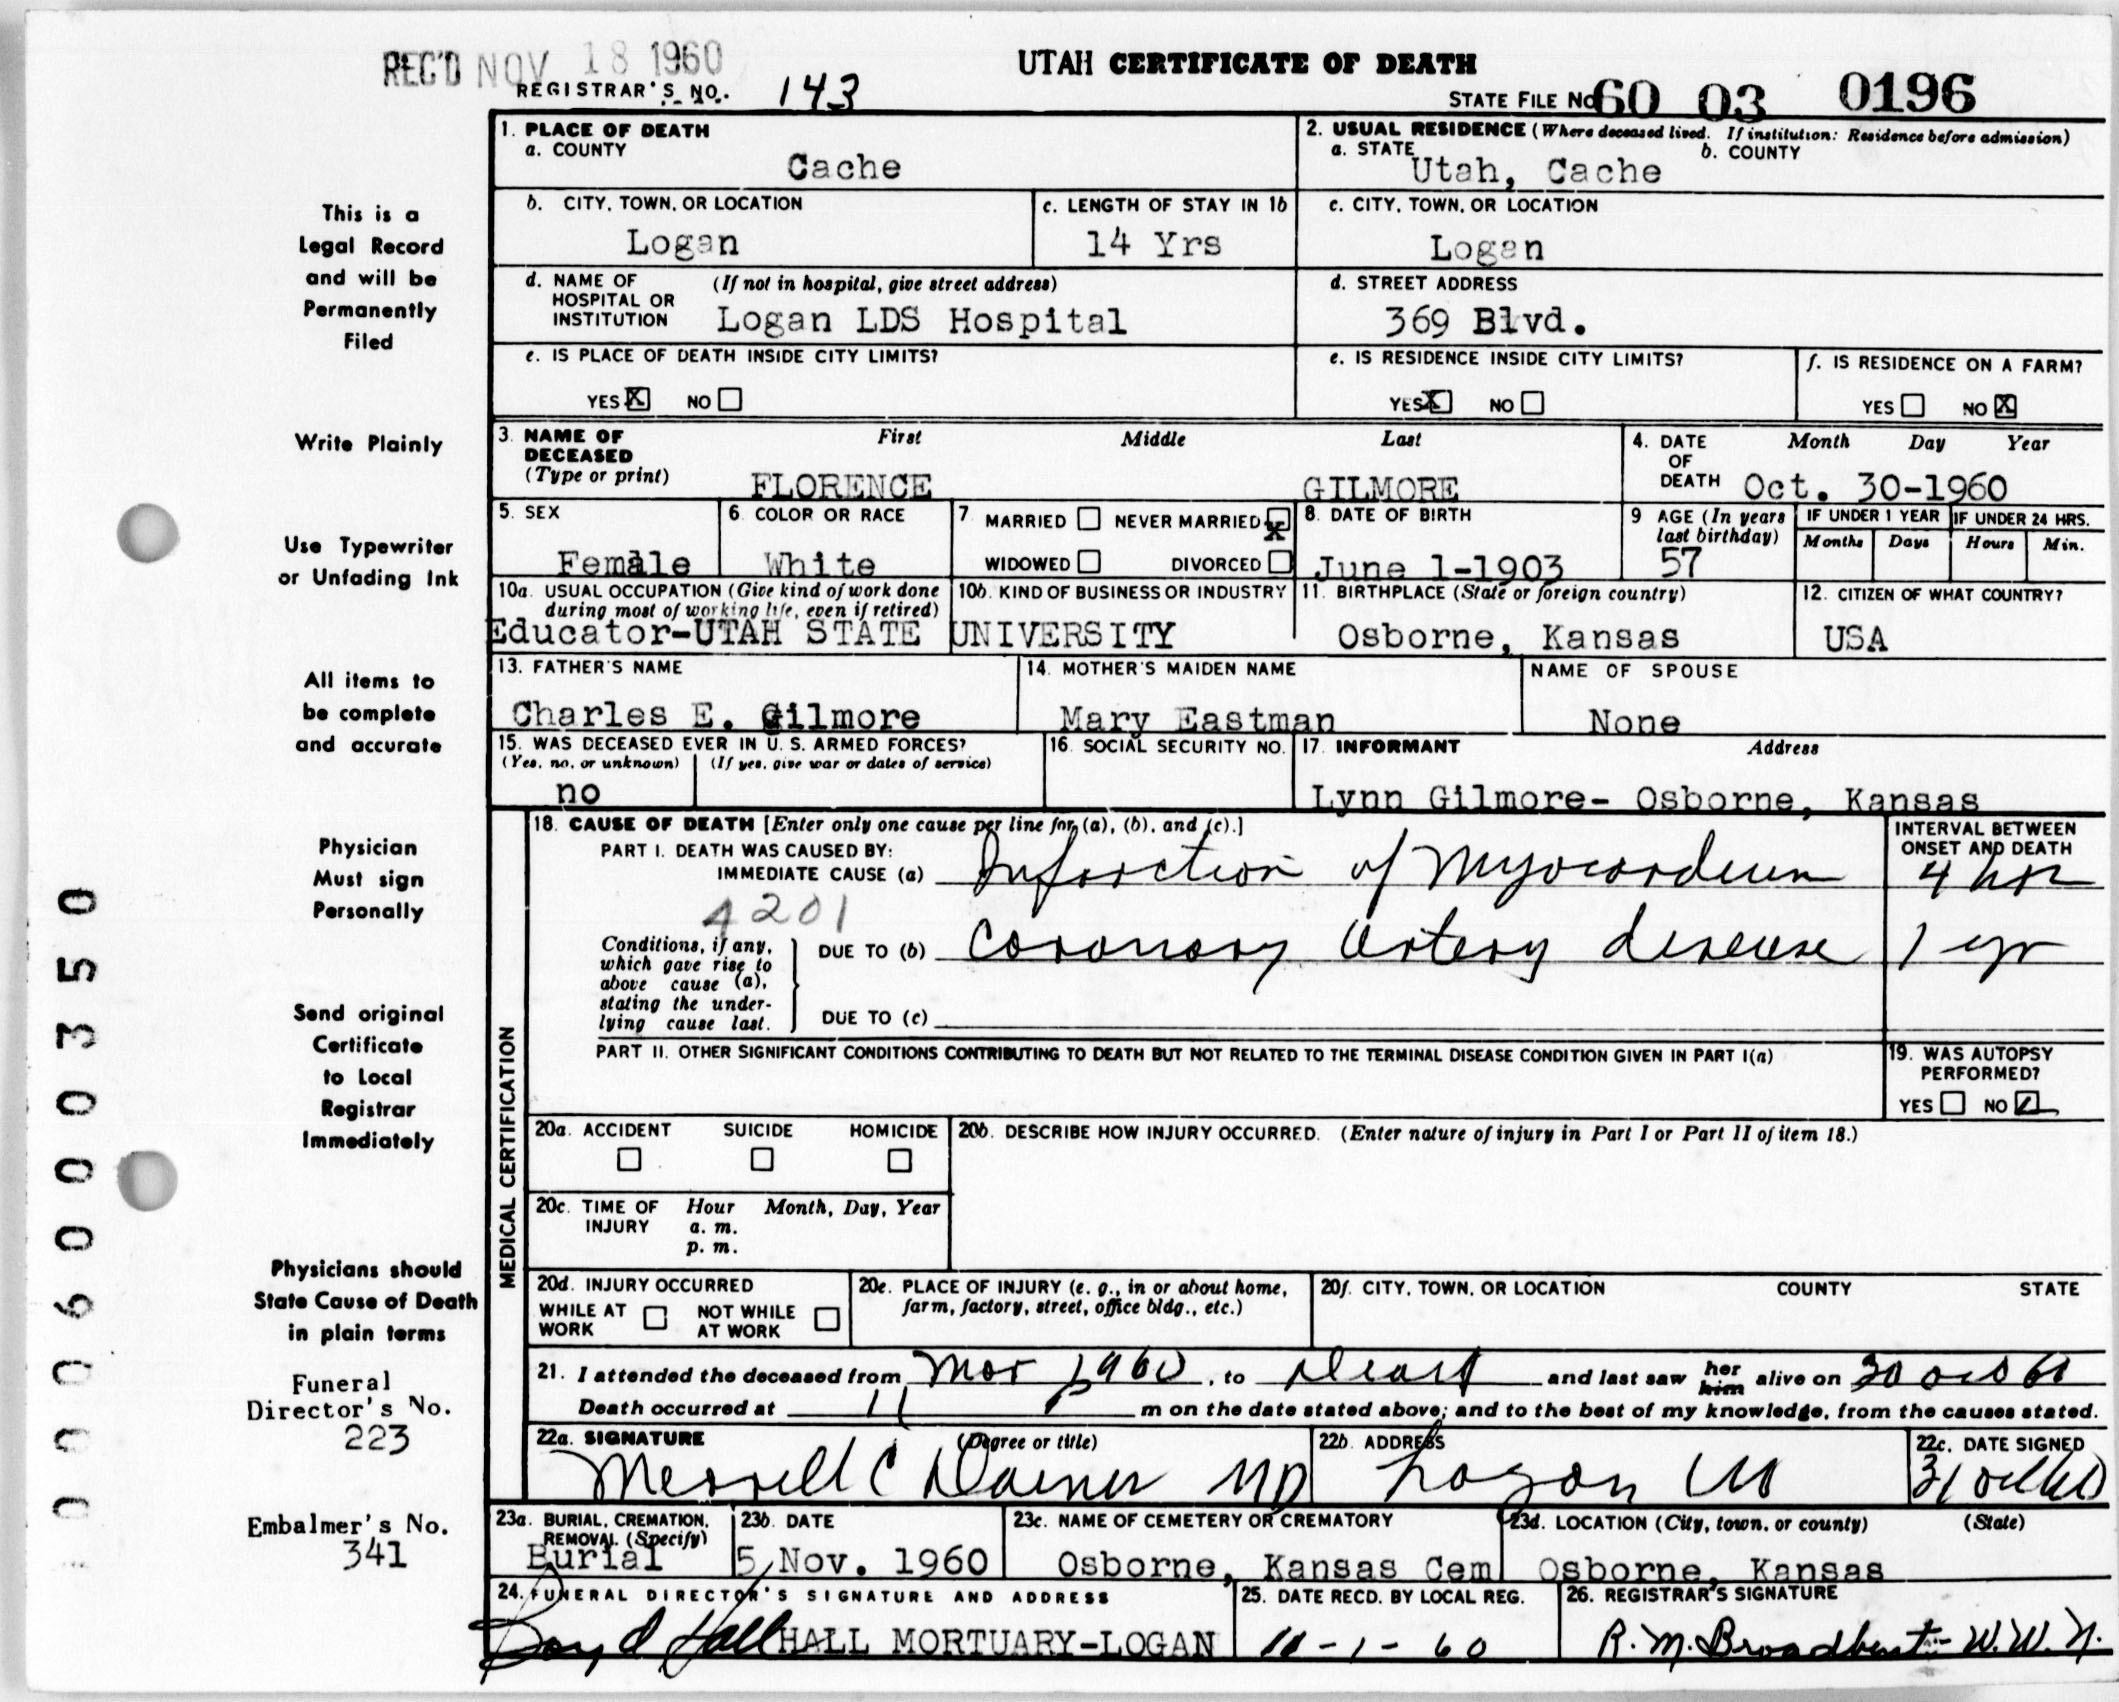 REC'D NOV 18 1960
UTAH CERTIFICATE OF DEATH
REGISTRAR'S NO. 143
STATE FILE NO. 60 03 0196
1. PLACE OF DEATH
a. COUNTY
Cache
2. USUAL RESIDENCE (Where deceased lived. If institution: Residence before admission)
a. STATE b. COUNTY
Utah, Cache
b. CITY, TOWN, OR LOCATION
Logan
c. LENGTH OF STAY IN 1b
14 Yrs
c. CITY, TOWN, OR LOCATION
Logan
d. NAME OF HOSPITAL OR INSTITUTION (If not in hospital, give street address)
Logan LDS Hospital
d. STREET ADDRESS
369 Blvd.
e. IS PLACE OF DEATH INSIDE CITY LIMITS?
YES X NO
e. IS RESIDENCE INSIDE CITY LIMITS?
YES X NO
f. IS RESIDENCE ON A FARM?
YES NO X
3. NAME OF DECEASED (Type or print) First Middle Last
FLORENCE GILMORE
4. DATE OF DEATH Month Day Year
Oct. 30-1960
5. SEX
Female
6. COLOR OR RACE
White
7. MARRIED NEVER MARRIED X
WIDOWED DIVORCED
8. DATE OF BIRTH
June 1-1903
9. AGE (In years last birthday)
57
IF UNDER 1 YEAR
Months Days
IF UNDER 24 HRS.
Hours Min.
10a. USUAL OCCUPATION (Give kind of work done during most of working life, even if retired)
10b. KIND OF BUSINESS OR INDUSTRY
Educator-UTAH STATE UNIVERSITY
11. BIRTHPLACE (State or foreign country)
Osborne, Kansas
12. CITIZEN OF WHAT COUNTRY?
USA
13. FATHER'S NAME
Charles E. Gilmore
14. MOTHER'S MAIDEN NAME
Mary Eastman
NAME OF SPOUSE
None
15. WAS DECEASED EVER IN U. S. ARMED FORCES?
(Yes, no, or unknown) (If yes, give war or dates of service)
no
16. SOCIAL SECURITY NO.
17. INFORMANT Address
Lynn Gilmore- Osborne, Kansas
MEDICAL CERTIFICATION
18. CAUSE OF DEATH [Enter only one cause per line for (a), (b), and (c).]
INTERVAL BETWEEN ONSET AND DEATH
PART I. DEATH WAS CAUSED BY:
IMMEDIATE CAUSE (a) Infarction of Myocardium 4 hrs
4201
Conditions, if any, which gave rise to above cause (a), stating the underlying cause last.
DUE TO (b) Coronary Artery disease 1 yr
DUE TO (c)
PART II. OTHER SIGNIFICANT CONDITIONS CONTRIBUTING TO DEATH BUT NOT RELATED TO THE TERMINAL DISEASE CONDITION GIVEN IN PART I(a)
19. WAS AUTOPSY PERFORMED?
YES NO
20a. ACCIDENT SUICIDE HOMICIDE
20b. DESCRIBE HOW INJURY OCCURRED. (Enter nature of injury in Part I or Part II of item 18.)
20c. TIME OF INJURY Hour Month, Day, Year
a. m.
p. m.
20d. INJURY OCCURRED
WHILE AT WORK NOT WHILE AT WORK
20e. PLACE OF INJURY (e. g., in or about home, farm, factory, street, office bldg., etc.)
20f. CITY, TOWN, OR LOCATION COUNTY STATE
21. I attended the deceased from Mar 1960, to Death and last saw her him alive on 30 Oct 60
Death occurred at 11 P m on the date stated above; and to the best of my knowledge, from the causes stated.
22a. SIGNATURE (Degree or title)
Merrill C Daines MD
22b. ADDRESS
Logan Ut
22c. DATE SIGNED
31 Oct 60
23a. BURIAL, CREMATION, REMOVAL (Specify)
Burial
23b. DATE
5 Nov. 1960
23c. NAME OF CEMETERY OR CREMATORY
Osborne, Kansas Cem
23d. LOCATION (City, town, or county) (State)
Osborne, Kansas
24. FUNERAL DIRECTOR'S SIGNATURE AND ADDRESS
Boyd Hall HALL MORTUARY-LOGAN
25. DATE RECD. BY LOCAL REG.
11-1-60
26. REGISTRAR'S SIGNATURE
R. M. Broadbent- W.W.N.
This is a
Legal Record
and will be
Permanently
Filed
Write Plainly
Use Typewriter
or Unfading Ink
All items to
be complete
and accurate
Physician
Must sign
Personally
Send original
Certificate
to Local
Registrar
Immediately
Physicians should
State Cause of Death
in plain terms
Funeral
Director's No.
223
Embalmer's No.
341
0006000350